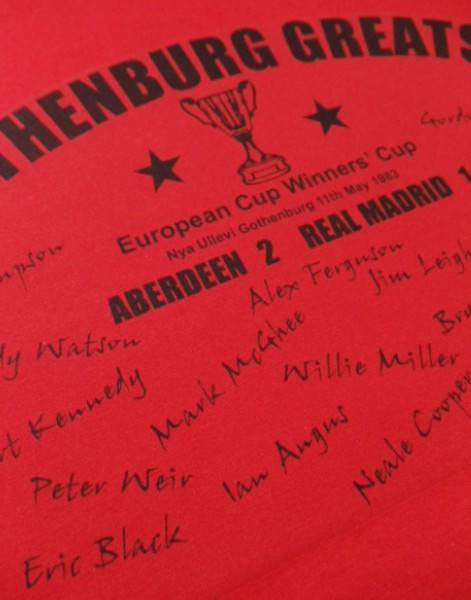 THENBURG GREATS
European Cup Winners' Cup
Nya Ullevi Gothenburg 11th May 1983
ABERDEEN 2 REAL MADRID 1
Gord
mpson
Alex Ferguson
Jim Leigh
dy Watson
Mark McGhee
Bru
Willie Miller
rt Kennedy
Peter Weir
Ian Angus
Neale Cooper
Eric Black